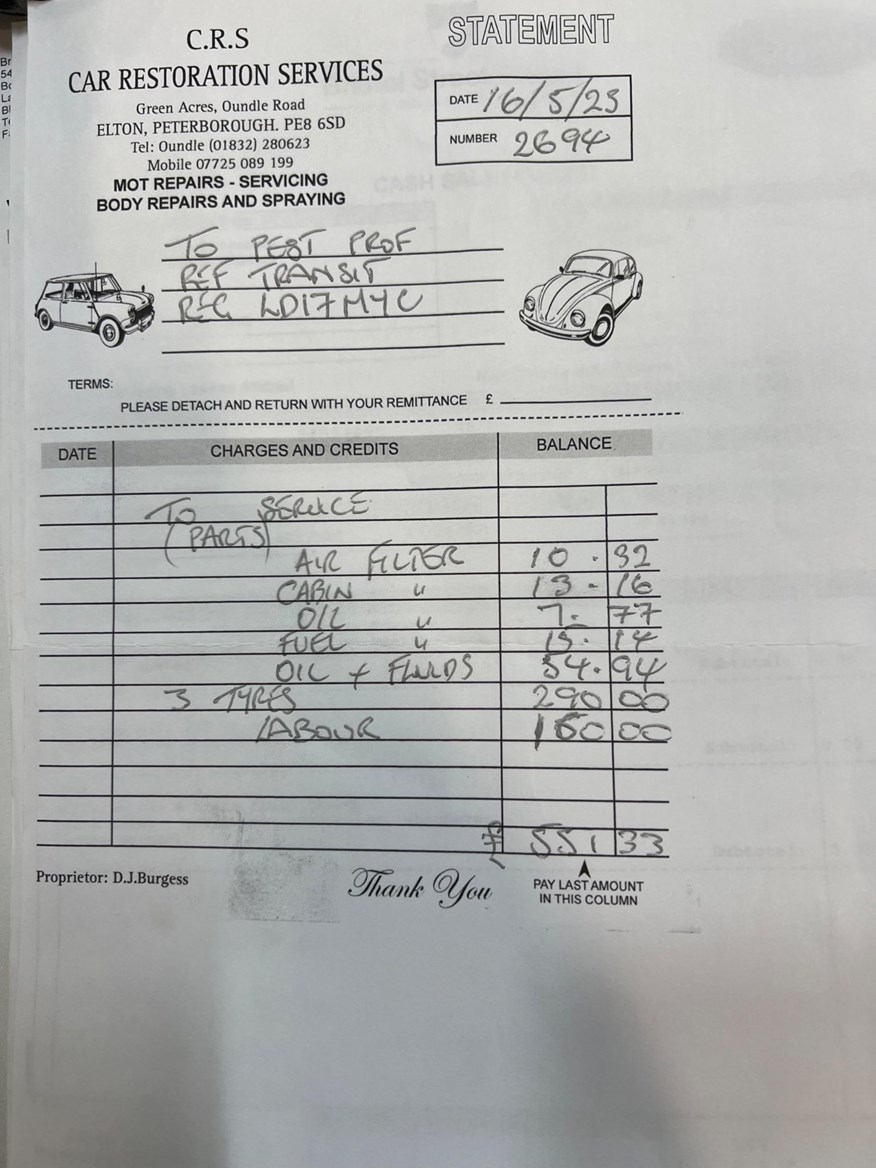 C.R.S
CAR RESTORATION SERVICES
Green Acres, Oundle Road
ELTON, PETERBOROUGH. PE8 6SD
Tel: Oundle (01832) 280623
Mobile 07725 089 199
MOT REPAIRS - SERVICING
BODY REPAIRS AND SPRAYING
STATEMENT
DATE 16/5/23
NUMBER 2694
TO PEST PROF
REF TRANSIT
REG LD17 MYC
TERMS:
PLEASE DETACH AND RETURN WITH YOUR REMITTANCE £
DATE CHARGES AND CREDITS BALANCE
TO SERVICE
(PARTS)
AIR FILTER 10.32
CABIN " 13-16
OIL " 7.77
FUEL " 15.14
OIL + FLUIDS 54.94
3 TYRES 290 00
LABOUR 160 00
£ 551 33
Proprietor: D.J.Burgess
Thank You
PAY LAST AMOUNT
IN THIS COLUMN